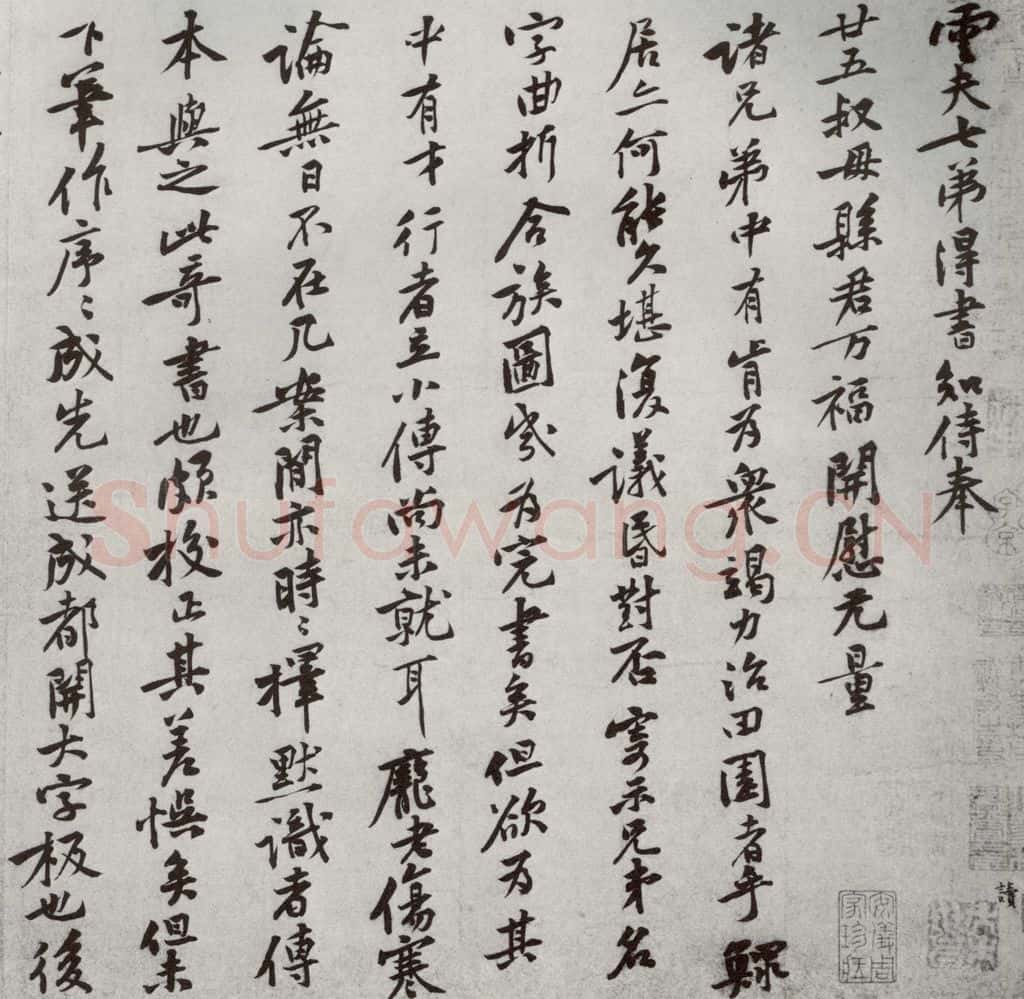 雲夫七弟得書知侍奉
廿五叔母縣君万福開慰无量
諸兄弟中有肯为衆竭力治田園者乎鰥
居亦何能久堪復議昏對否寄示兄弟名
字曲折合族圖幾为完書矣但欲为其
中有才行者立小傳尚未就耳龐老傷寒
論無日不在几案間亦時〻擇默識者傳
本與之此奇書也頗校正其差悞矣但未
下筆作序〻成先送成都開大字板也後
讀
安儀周家珍藏
Shufawang.CN